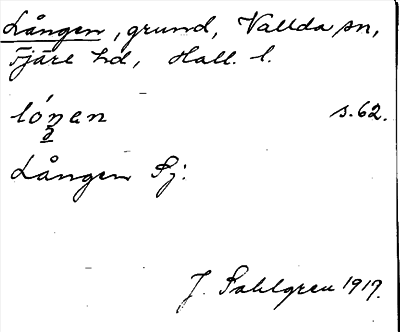 Lången, grund, Vallda sn,
Fjäre hd, Hall. l.
lóŋen s.62.
2
Lången Sj:
J. Sahlgren 1917.